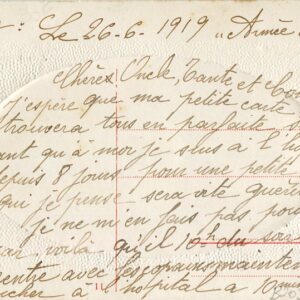 : Le 26-6-1919 „Armée
Chères Oncle, Tante et Cou
J'espère que ma petite carte
trouvera tous en parfaite
ant qu'à moi je suis à l'h
depuis 8 jours pour une petite
que je pense sera vite guéri
je ne m'en fais pas pour
car voila qu'il 10h du soir
rentre avec les copains mainten
ucher à l'hopital à 10